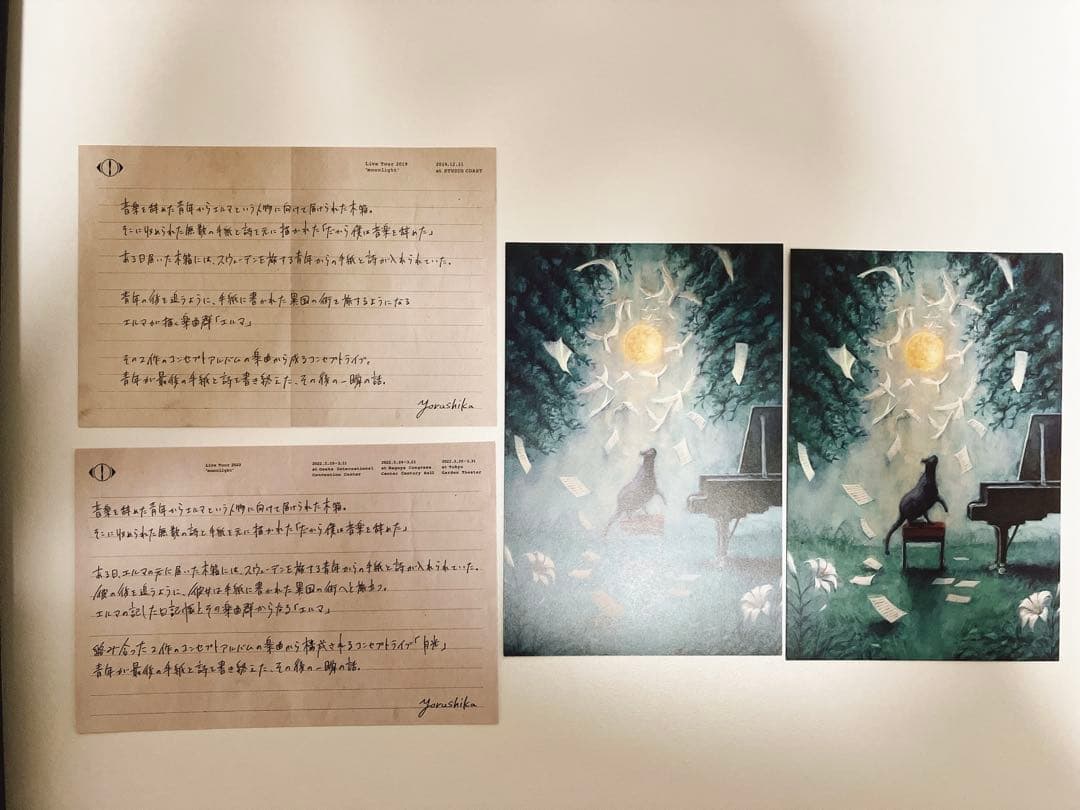 Live Tour 2019
"moonlight"
2019.12.21
at STUDIO COAST
音楽を辞めた青年からエルマという人物に向けて届けられた木箱。
そこに収められた無数の手紙と詩を元に描かれた「だから僕は音楽を辞めた」
ある日届いた木箱には、スウェーデンを旅する青年からの手紙と詩が入れられていた。
青年の後を追うように、手紙に書かれた異国の街を旅するようになる
エルマが描く楽曲群「エルマ」
その2作のコンセプトアルバムの楽曲から成るコンセプトライブ。
青年が最後の手紙と詩を書き終えた、その後の一瞬の話。
Yorushika
Live Tour 2022
"moonlight"
at Osaka International
Convention Center
at Nagoya Congress
Center Century Hall
at Tokyo
Garden Theater
音楽を辞めた青年からエルマという人物に向けて届けられた木箱。
そこに収められた無数の詩と手紙を元に描かれた「だから僕は音楽を辞めた」
ある日、エルマの元に届いた木箱には、スウェーデンを旅する青年からの手紙と詩が入れられていた。
彼の後を追うように、彼女は手紙に書かれた異国の街へと旅立つ。
エルマの記した日記帳とその楽曲群からなる「エルマ」
絡み合った2作のコンセプトアルバムの楽曲から構成されるコンセプトライブ「月光」
青年が最後の手紙と詩を書き終えた、その後の一瞬の話。
Yorushika